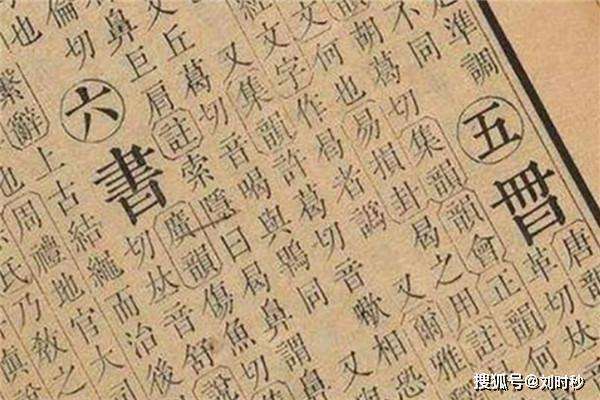 是準調
五
曷
唐韻
不同
革切𠀤
胡葛切集韻韻會正韻何
何也易損卦曷之用註
經文
文字作曷者譌
又爾雅
又集韻許葛切音嗽相恐
丘葛切音喝與鶡同
又
鼻巨肩註索隱曰曷鼻謂鼻
倫切
六
書
廣韻傷魚切
切𠀤音舒
也
繫辭上古結繩而治後
也周禮地官大司
氏乃教之
搜狐号@刘时秒